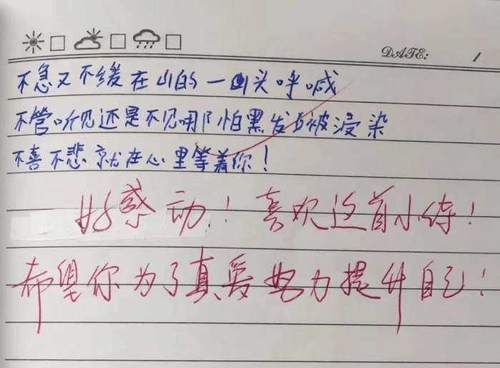 DATE: 1
不急又不缓在山的一山头呼喊
不管听见还是不见哪怕黑发白被浸染
不喜不悲就在心里等着你！
好感动！喜欢这首小诗！
希望你为了真爱努力提升自己！